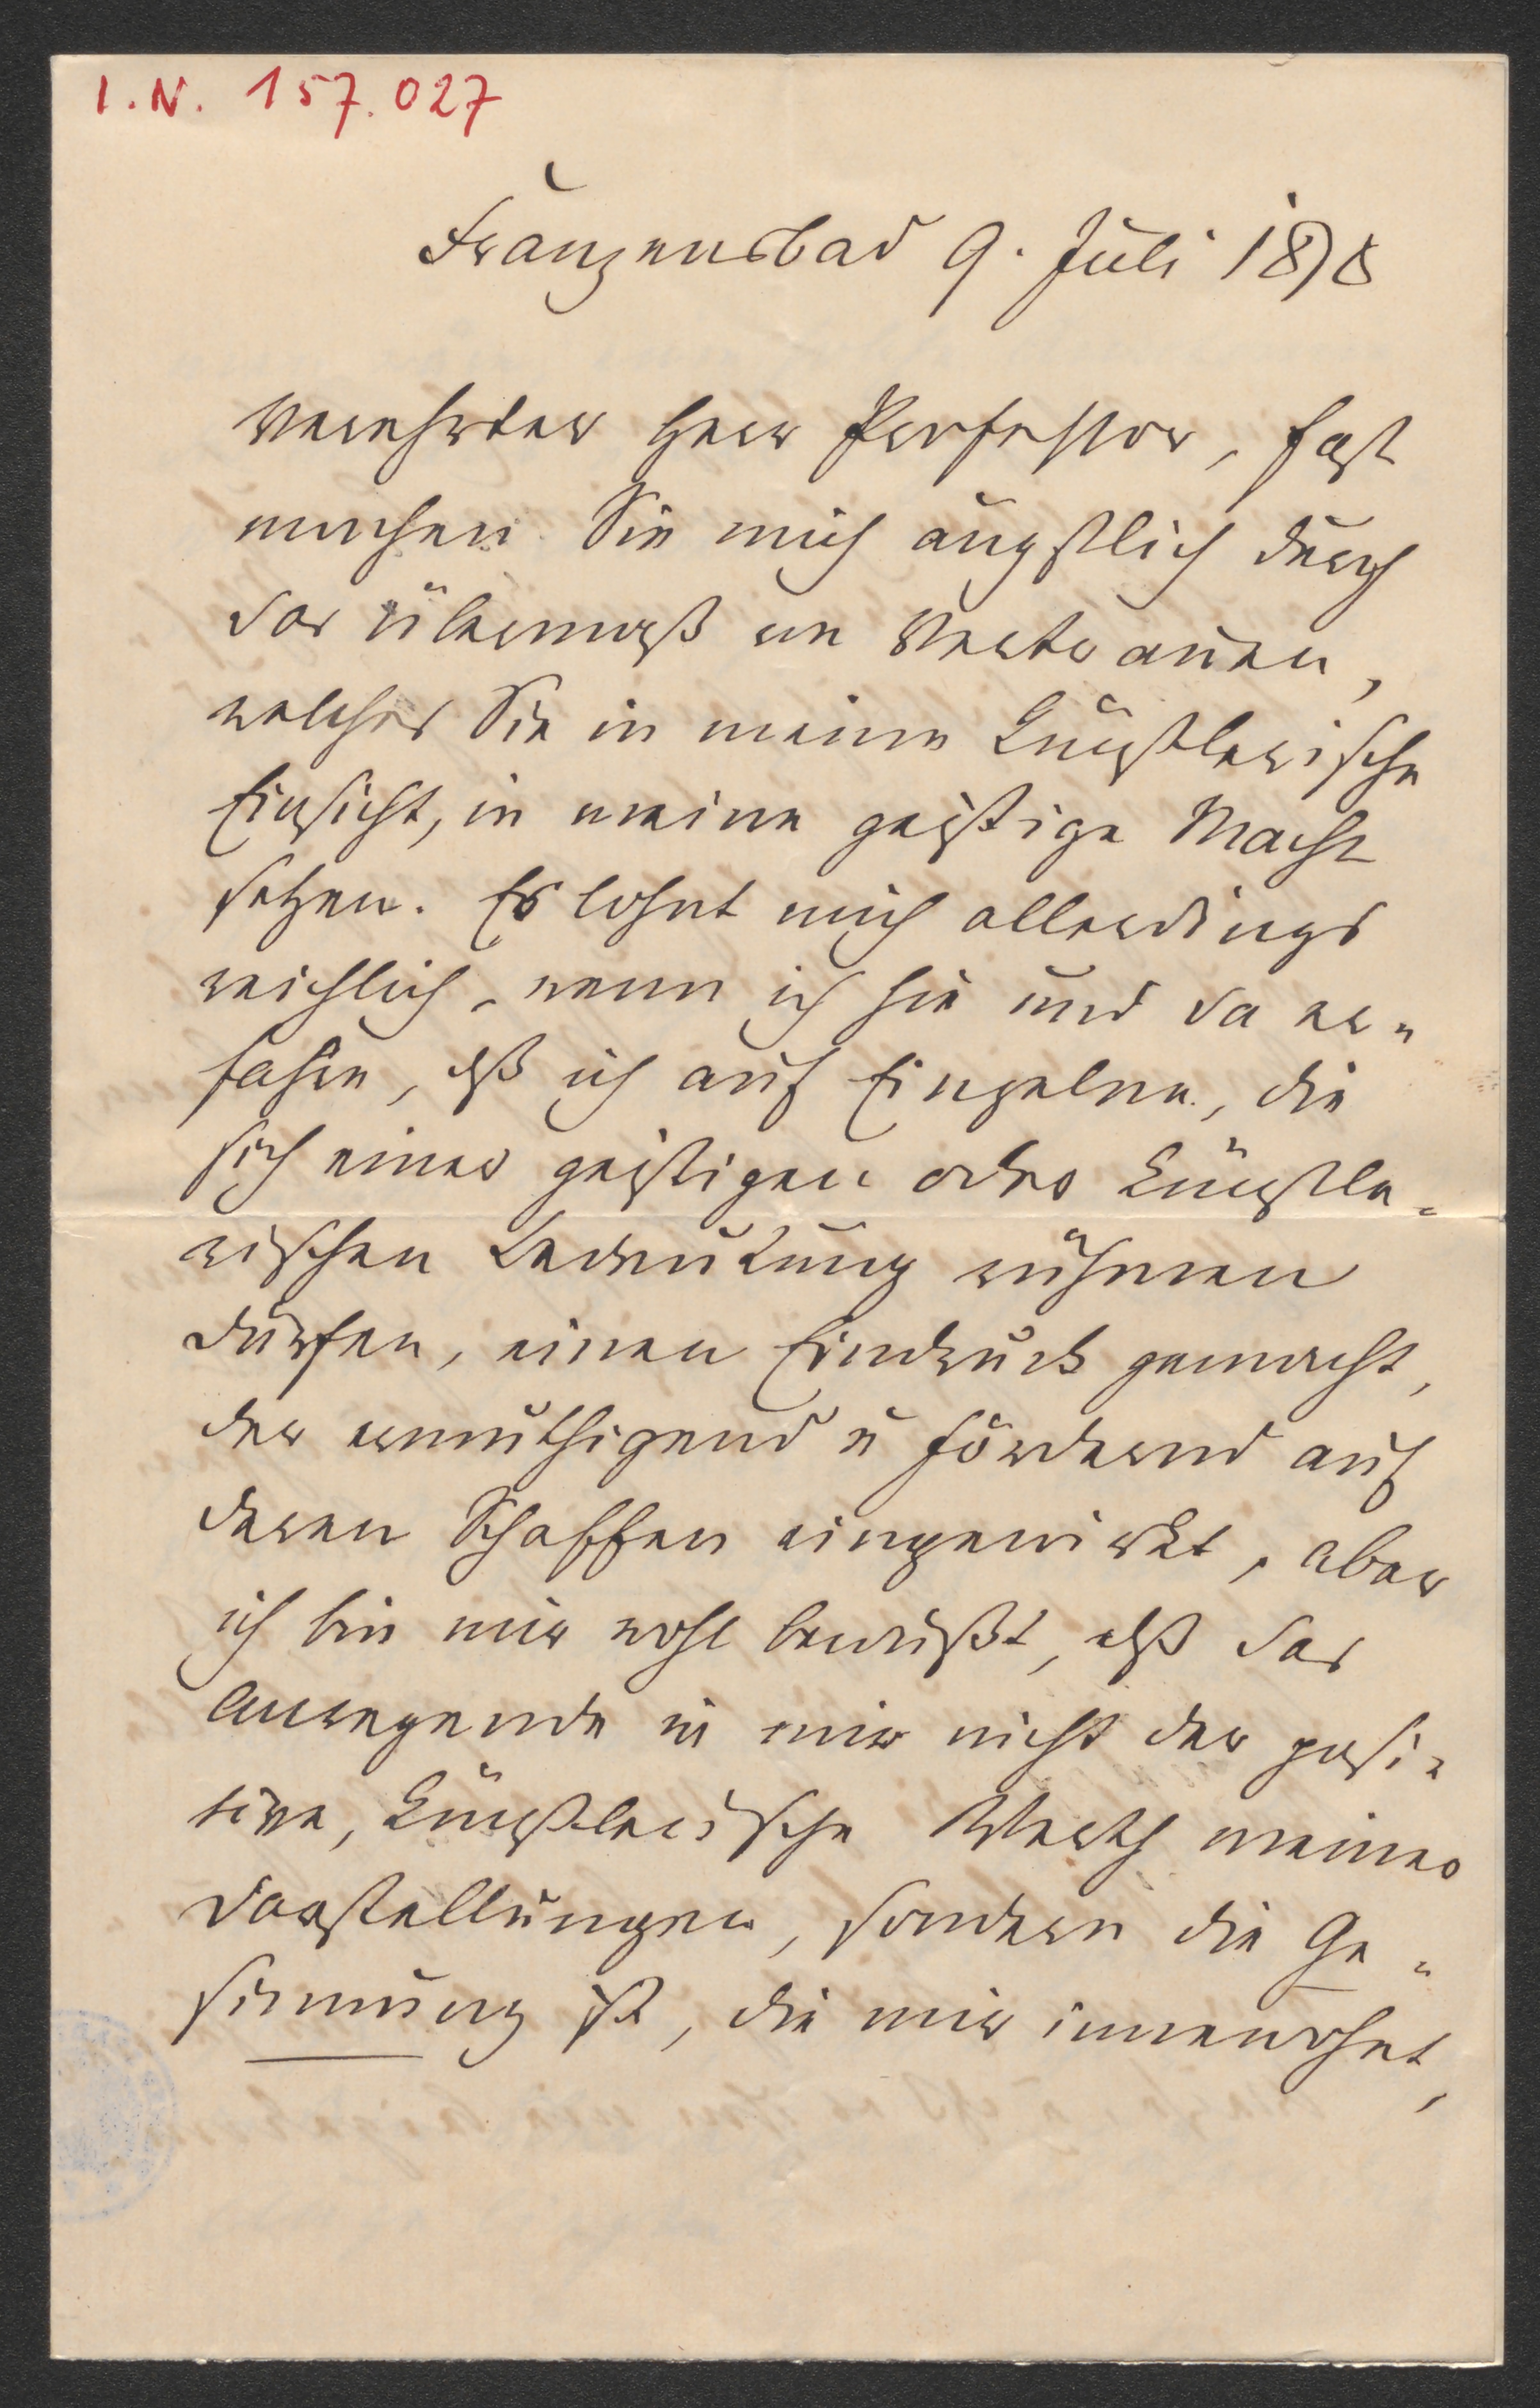 I.N. 157.027
Franzensbad 9. Juli 1878
Verehrter Herr Professor, fast
machen Sie mich ängstlich durch
das Übermaß an Vertrauen,
welches Sie in meine künstlerische
Einsicht, in meine geistige Macht
setzen. Es lohnt mich allerdings
reichlich, wenn ich hie und da er-
fahre, dß ich auf Einzelne, die
sich einer geistigen oder künstle-
rischen Bedeutung rühmen
dürfen, einen Eindruck gemacht,
der ermuthigend u fördernd auf
deren Schaffen eingewirkt, aber
ich bin mir wohl bewußt, dß das
Anregende in mir nicht der posi-
tive, künstlerische Werth meiner
Darstellungen, sondern die Ge-
sinnung ist, die mir innewohnt,